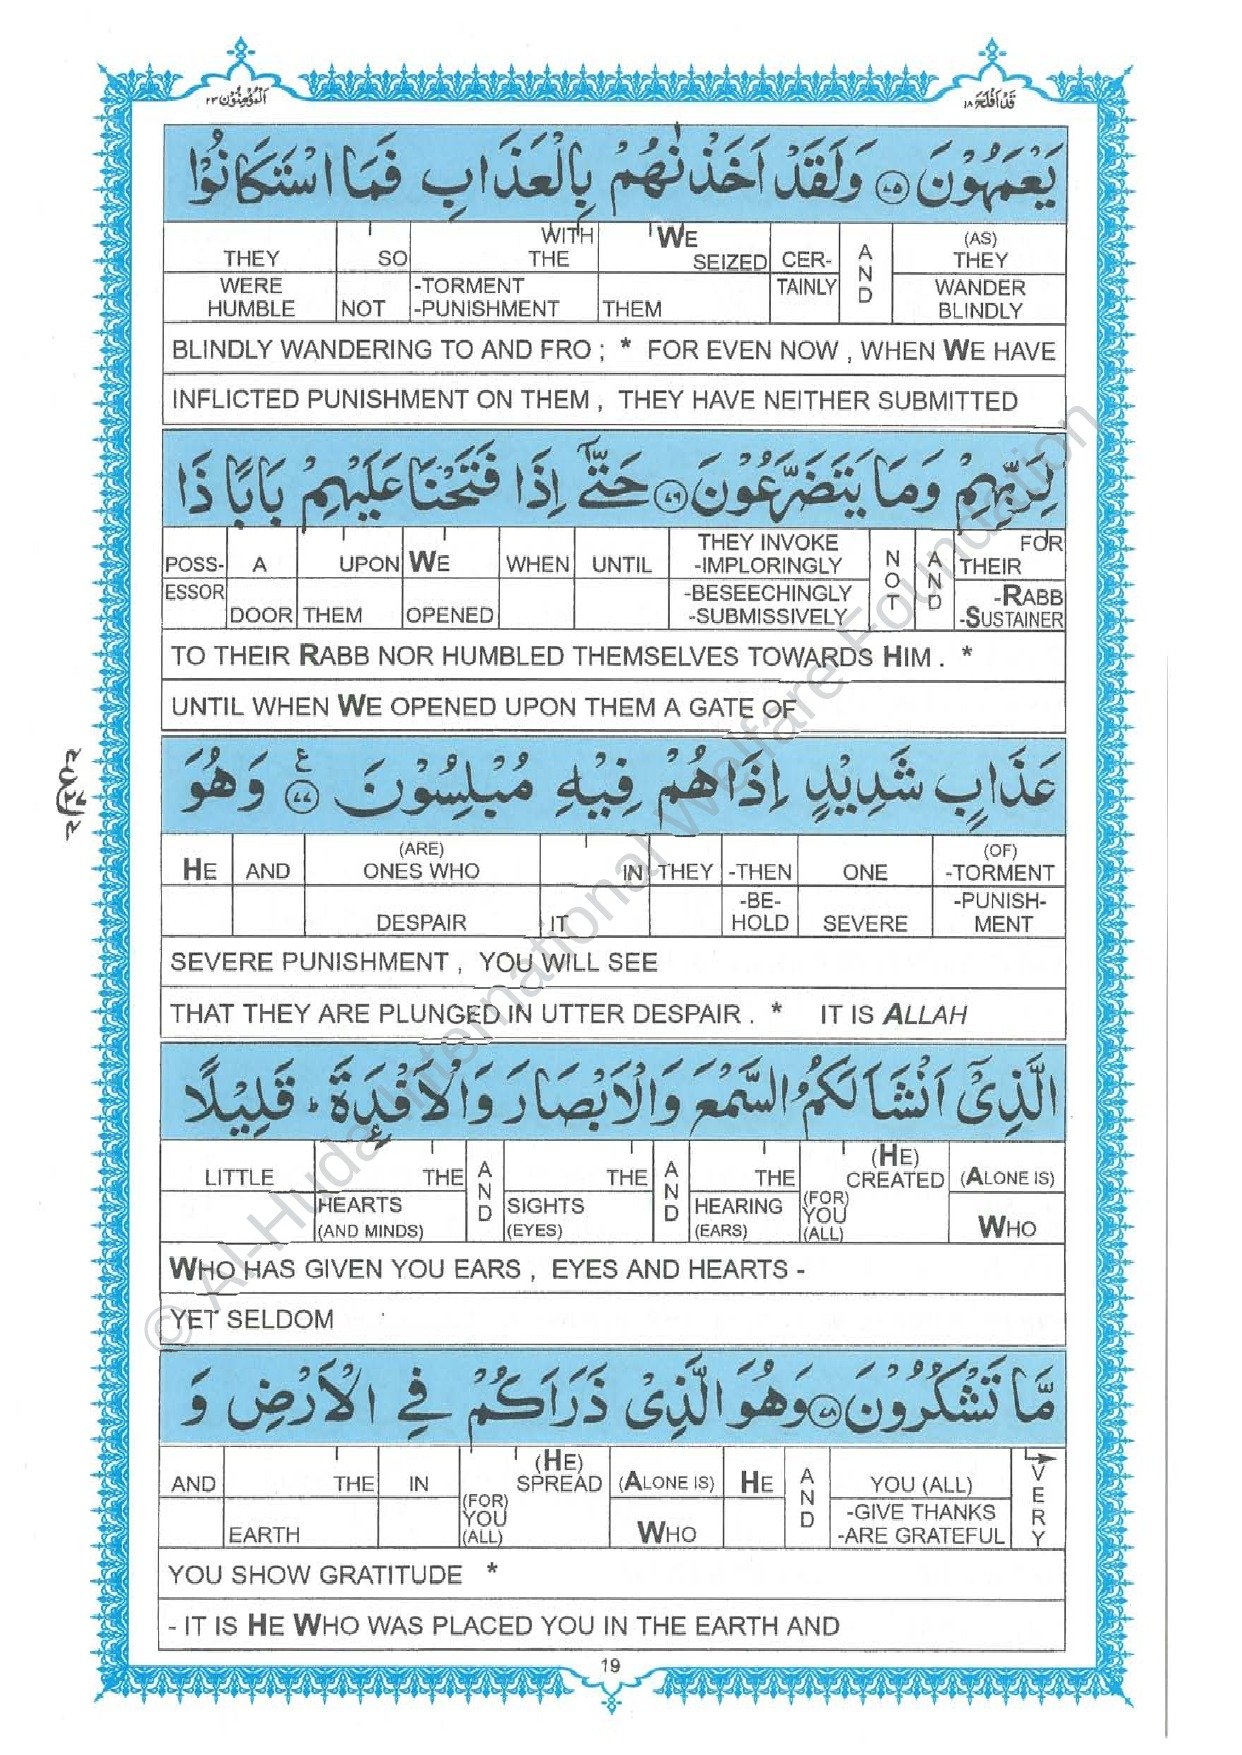 المؤمنون ٢٣
قد افلح ١٨
يَعْمَهُوْنَ ۝٧٥ وَلَقَدْ اَخَذْنٰهُمْ بِالْعَذَابِ فَمَا اسْتَكَانُوْا
THEY SO WITH THE WE SEIZED CER- AND (AS) THEY
WERE HUMBLE NOT -TORMENT -PUNISHMENT THEM TAINLY WANDER BLINDLY
BLINDLY WANDERING TO AND FRO ; * FOR EVEN NOW , WHEN WE HAVE
INFLICTED PUNISHMENT ON THEM , THEY HAVE NEITHER SUBMITTED
لِرَبِّهِمْ وَمَا يَتَضَرَّعُوْنَ ۝٧٦ حَتّٰٓى اِذَا فَتَحْنَا عَلَيْهِمْ بَابًا ذَا
POSS- A UPON WE WHEN UNTIL THEY INVOKE -IMPLORINGLY NOT AND FOR THEIR
ESSOR DOOR THEM OPENED -BESEECHINGLY -SUBMISSIVELY -RABB -SUSTAINER
TO THEIR RABB NOR HUMBLED THEMSELVES TOWARDS HIM . *
UNTIL WHEN WE OPENED UPON THEM A GATE OF
عَذَابٍ شَدِيْدٍ اِذَا هُمْ فِيْهِ مُبْلِسُوْنَ ۝٧٧ ع وَهُوَ
HE AND (ARE) ONES WHO IN THEY -THEN ONE (OF) -TORMENT
DESPAIR IT -BE- HOLD SEVERE -PUNISH- MENT
SEVERE PUNISHMENT , YOU WILL SEE
THAT THEY ARE PLUNGED IN UTTER DESPAIR . * IT IS ALLAH
الَّذِيْٓ اَنْشَاَ لَكُمُ السَّمْعَ وَالْاَبْصَارَ وَالْاَفْـِٕدَةَ ؕ قَلِيْلًا
LITTLE THE AND THE AND THE (HE) CREATED (ALONE IS)
HEARTS (AND MINDS) SIGHTS (EYES) HEARING (EARS) (FOR) YOU (ALL) WHO
WHO HAS GIVEN YOU EARS , EYES AND HEARTS -
YET SELDOM
مَّا تَشْكُرُوْنَ ۝٧٨ وَهُوَ الَّذِيْ ذَرَاَكُمْ فِي الْاَرْضِ وَ
AND THE IN (HE) SPREAD (ALONE IS) HE AND YOU (ALL) VERY
EARTH (FOR) YOU (ALL) WHO -GIVE THANKS -ARE GRATEFUL
YOU SHOW GRATITUDE *
- IT IS HE WHO WAS PLACED YOU IN THE EARTH AND
19
© Al-Huda International Welfare Foundation